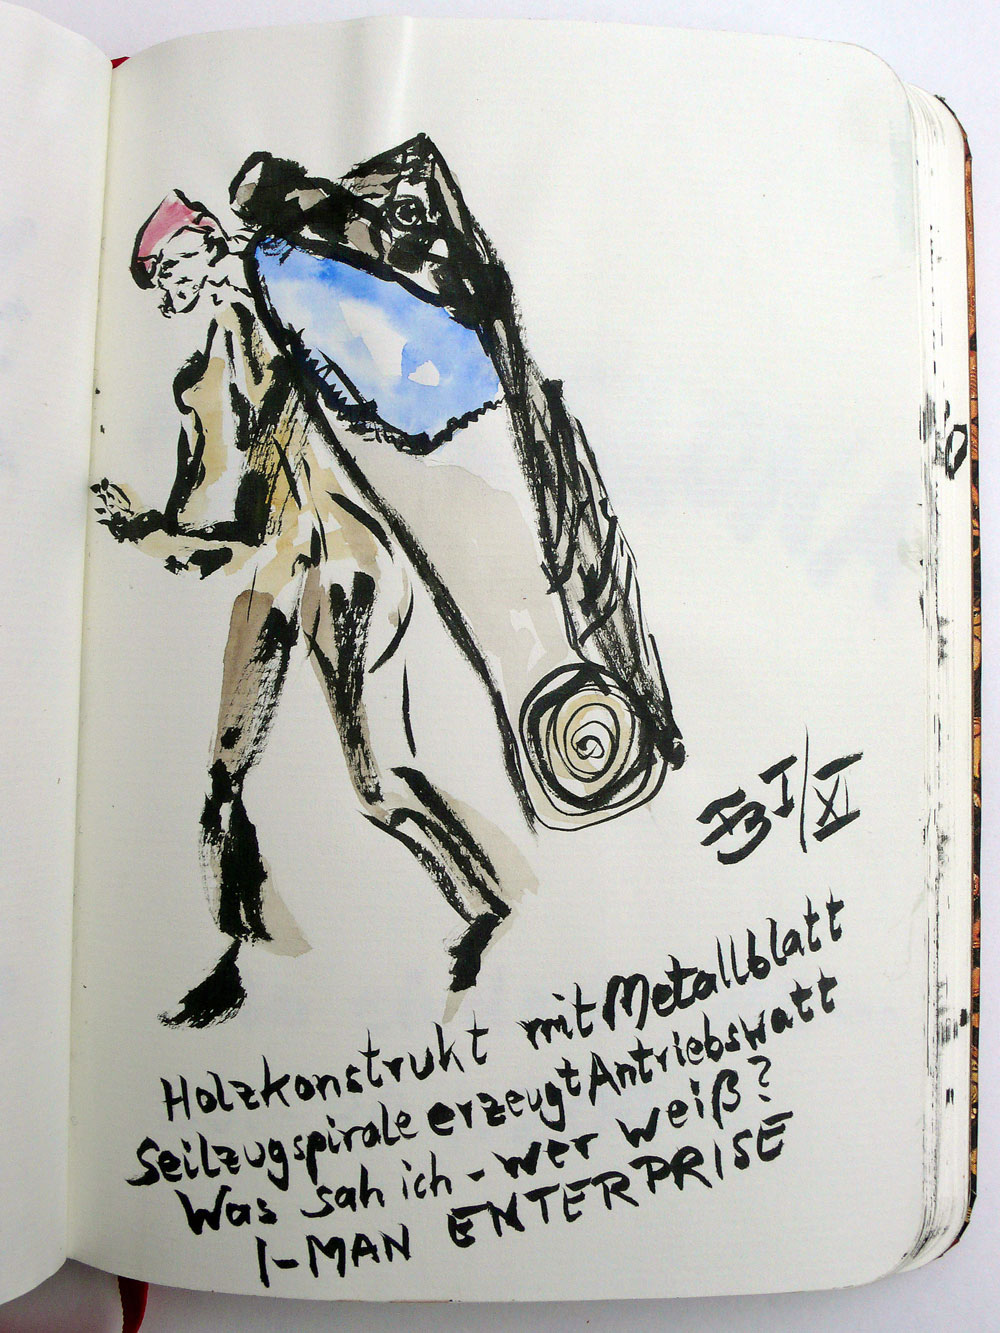 I/XI
Holzkonstrukt mit Metallblatt
Seilzugspirale erzeugt Antriebswatt
Was sah ich - wer weiß?
I-MAN ENTERPRISE